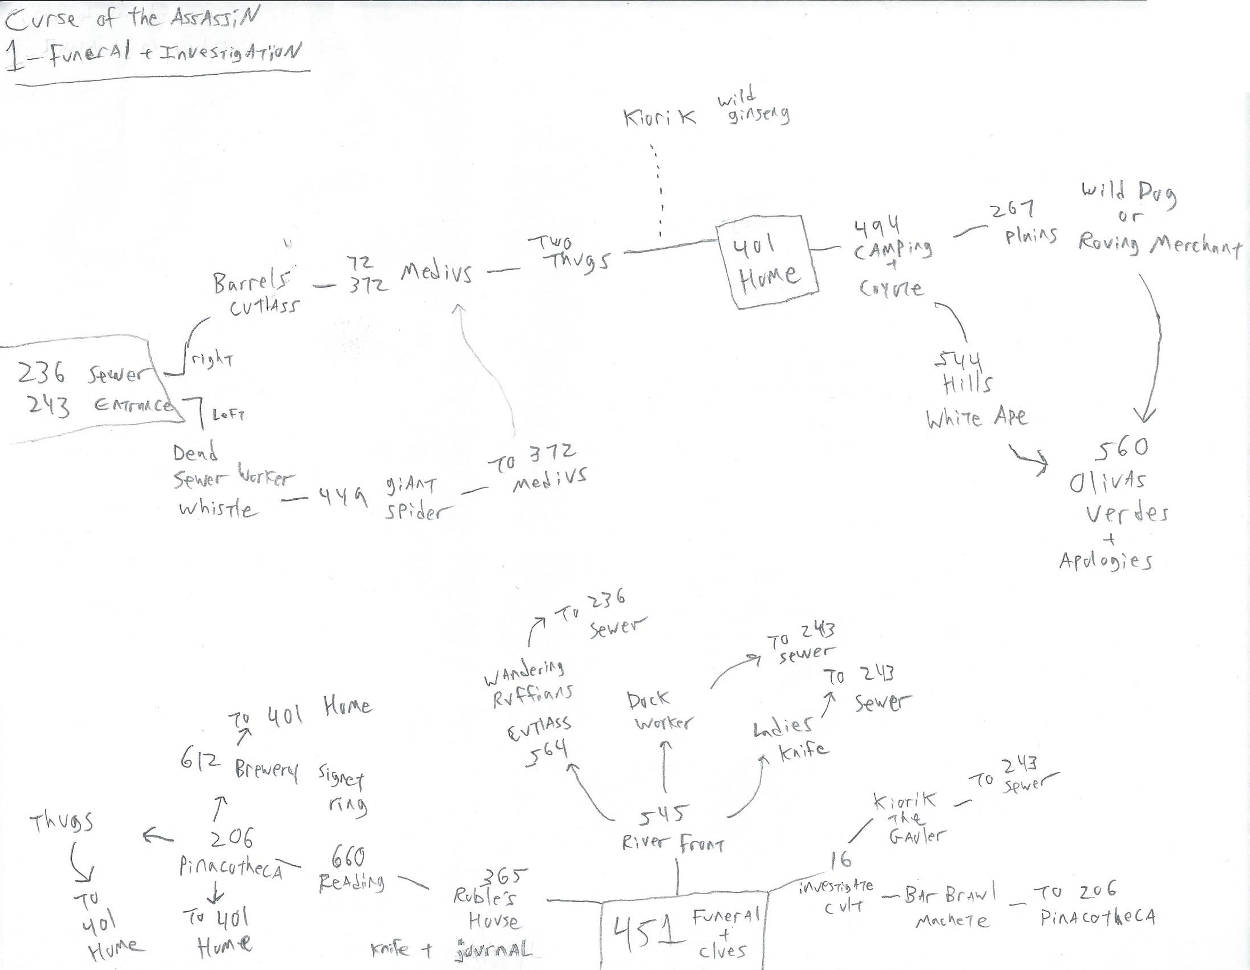 Curse of the Assassin
1 - Funeral + Investigation
Kiorik wild
ginseng
Two
Thugs
401
Home
494
Camping
+
Coyote
267
Plains
Wild Dog
or
Roving Merchant
Barrels
Cutlass
72
372
Medivs
236 Sewer
243 Entrance
right
Left
Dead
Sewer Worker
Whistle
449 giant
spider
To 372
Medivs
544
Hills
White Ape
560
Olivas
Verdes
+
Apologies
To 236
Sewer
Wandering
Ruffians
Cutlass
564
Dock
Worker
To 243
sewer
To 243
Sewer
Ladies
Knife
To 401 Home
612 Brewery signet
ring
Thugs
206
Pinacotheca
To
401
Home
To 401
Home
660
Reading
365
Roble's
House
Knife + journal
545
River Front
451 Funeral
+
clues
16
investigate
cult
Kiorik
The
Gaoler
To 243
Sewer
Bar Brawl
Machete
To 206
Pinacotheca